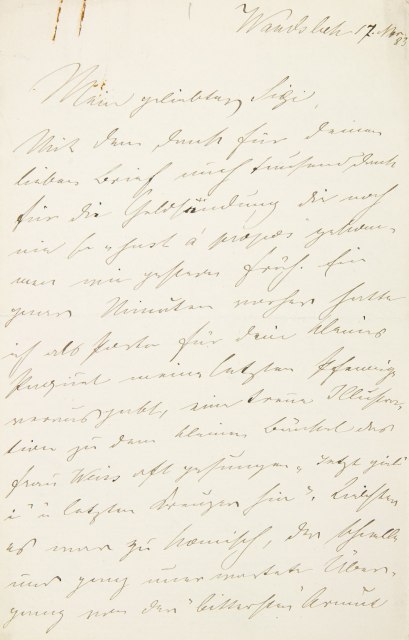 Wandsbek 17. Nov. 83
Mein geliebter Sigi,
Mit dem Dank für Deinen
lieben Brief auch tausend Dank
für die Geldsendung die noch
nie so „just à propos" gekom-
men wie gestern früh. Ein
paar Minuten vorher hatte
ich als Porto für dein kleines
Paquet meine letzten Pfennige
verausgabt, eine treue Illustra-
tion zu dem kleinen das
Frau Weiss oft gesungen „Jetzt
i a letzten Kreuzer hin". Liebster
es war zu komisch, der schnelle
und ganz unerwartete Über-
gang von der "bittersten" Armut